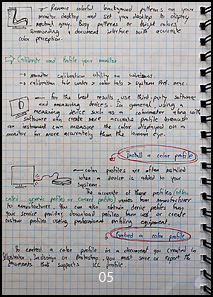 Remove colorful background patterns on your
monitor desktop and set your desktop to display
neutral grays. Busy patterns or bright colors
surrounding a document interfere with accurate
color perception.
→ Calibrate and Profile your monitor
→ monitor calibration utility on windows
→ calibration tab under monitors / systems Pref.
For the best results use third-party software
and measuring devices. In general, using a
measuring device such as a colorimeter along with
software can create more accurate profiles because
an instrument can measure the color displayed on a
monitor far more accurately than the human eye.
install a color profile
→ color profiles are often installed
when a device is added to your
system
The accuracy of these profiles (often
called generic profiles or canned profiles) varies from manufacturer
to manufacturer. You can also obtain device profiles from
your service provider, download profiles from web, or create
custom profiles using professional profiling equipment.
Embed a color profile
To embed a color profile in a document you created in
Illustrator, InDesign or Photoshop, you must save or export the
document that supports ICC profile
05